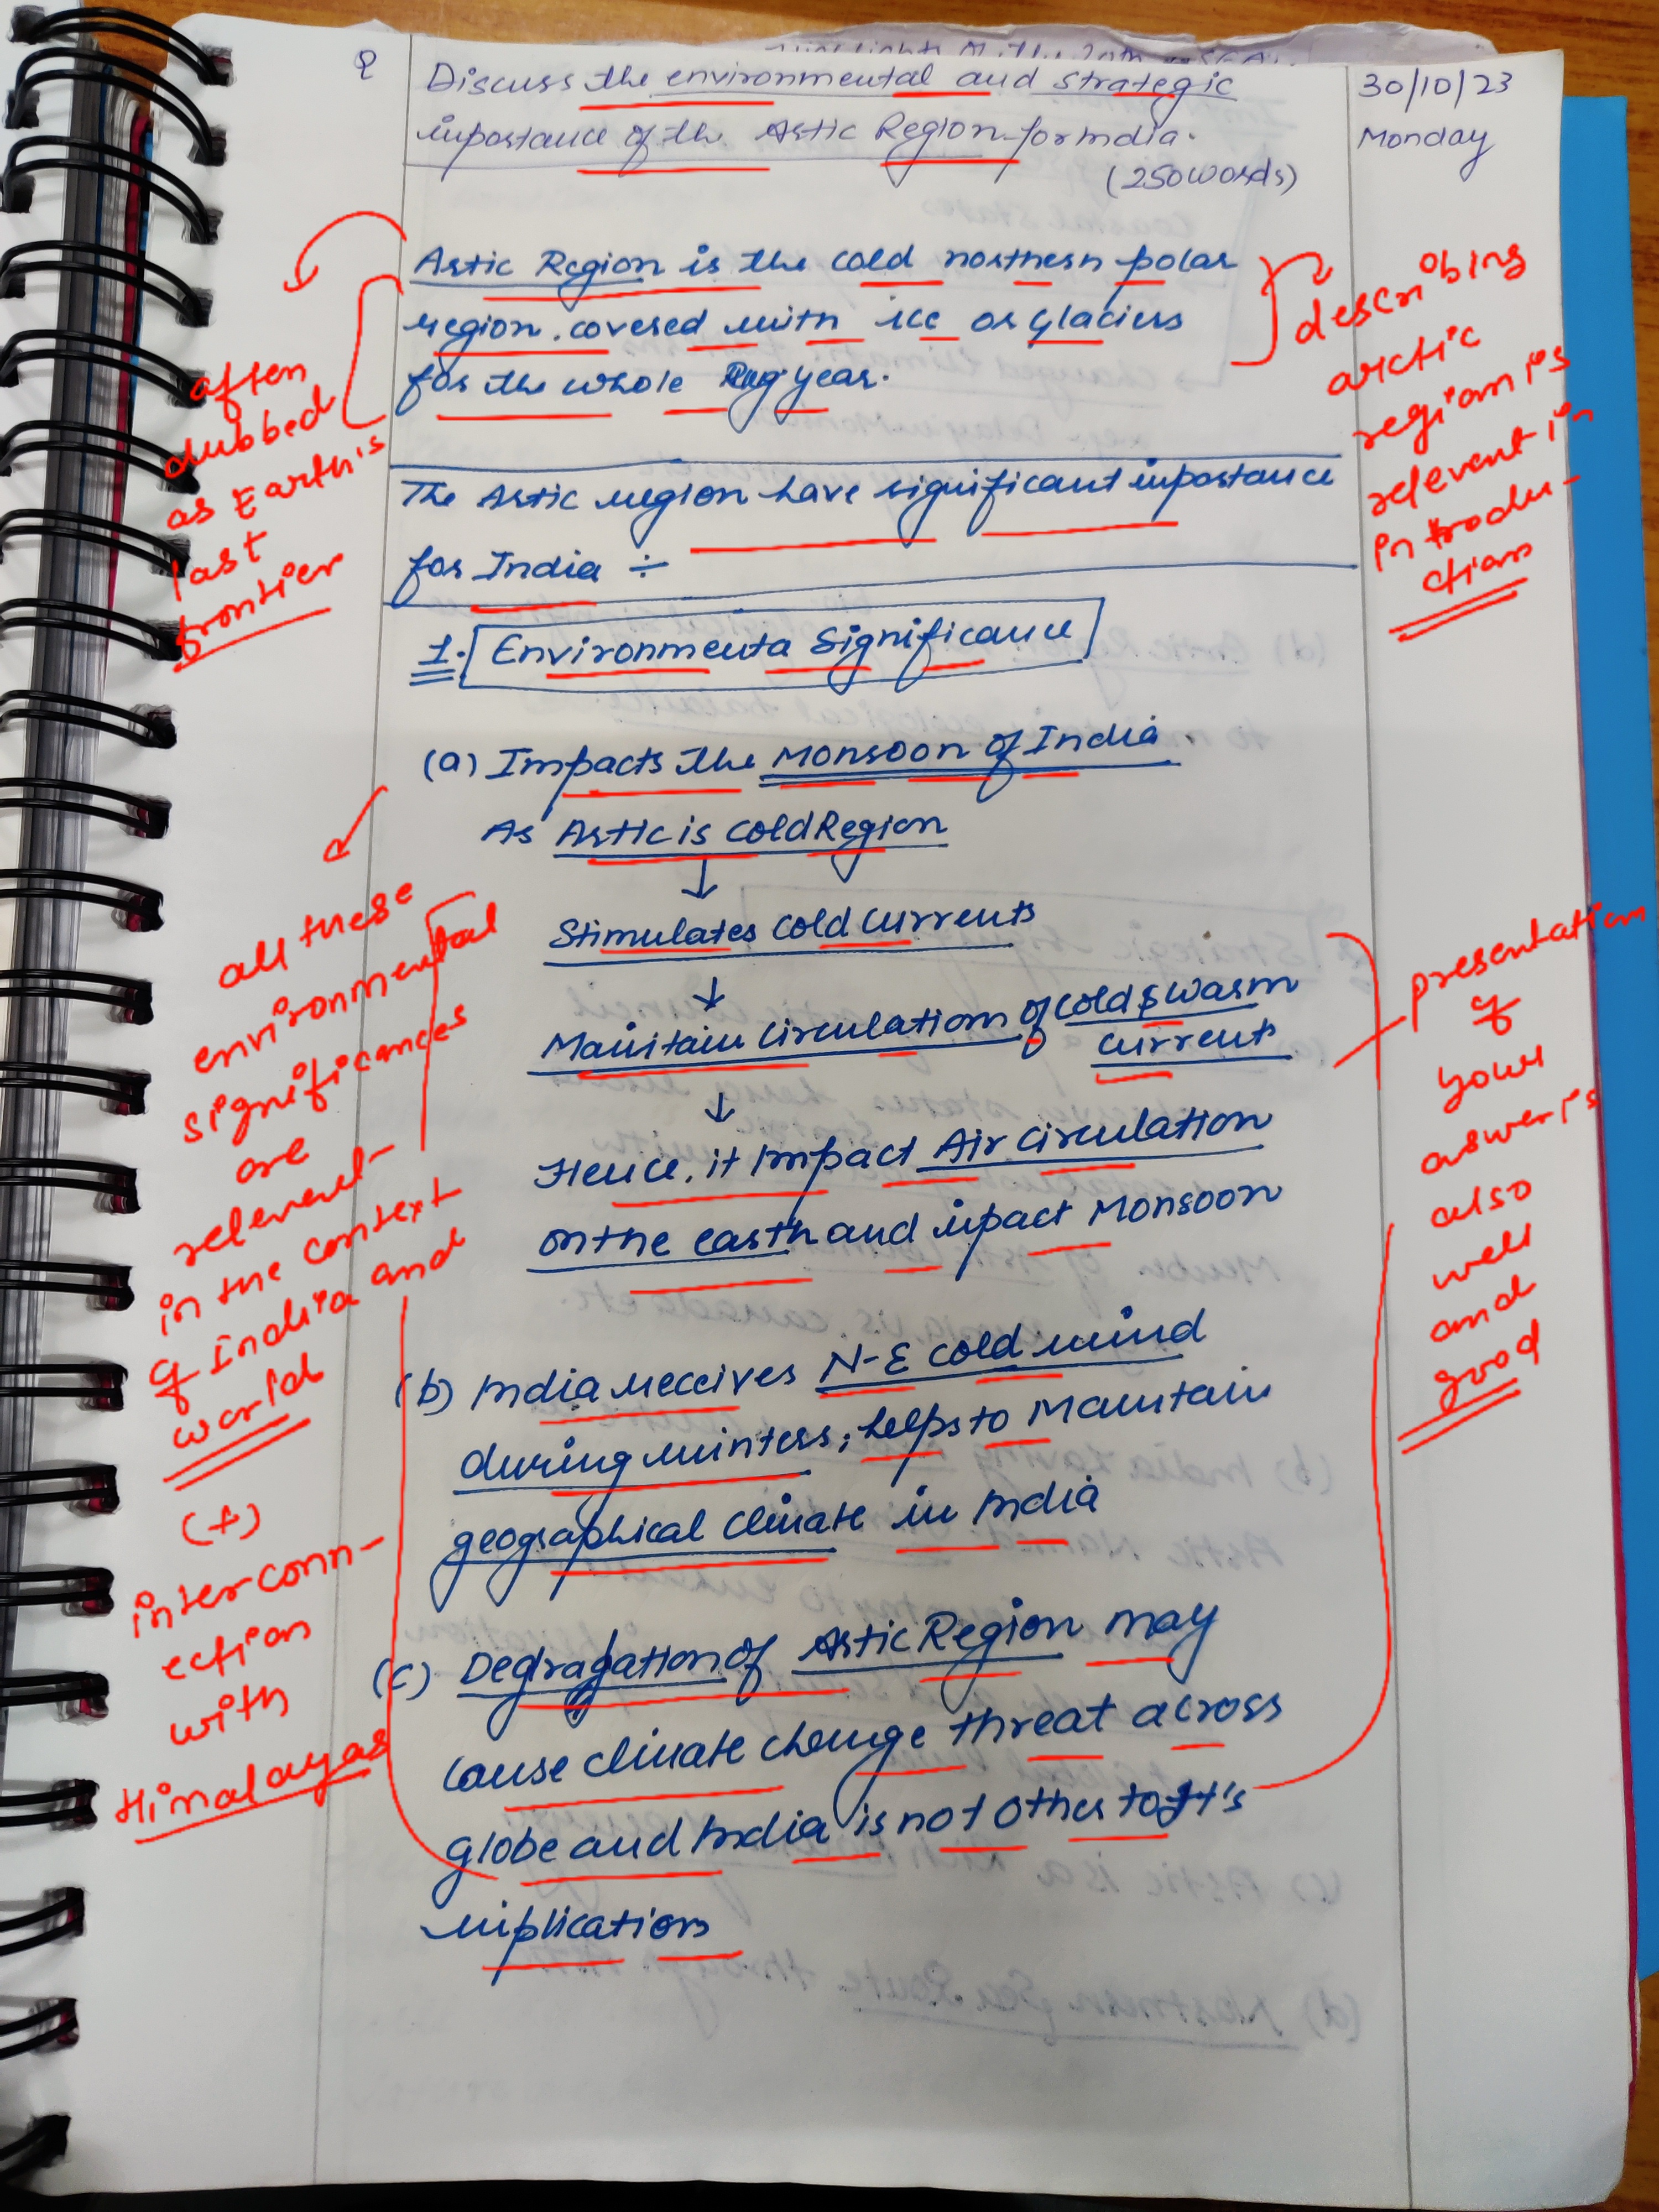 Q
Discuss the environmental and strategic
importance of the Artic Region for India.
(250 words)
30/10/23
Monday
Artic Region is the cold northern polar
region. covered with ice or glaciers
for the whole year.
often
dubbed
as Earth's
last
frontier
describing
arctic
region is
relevent in
introdu-
ction
The Artic region have significant importance
for India ÷
1. Environmenta Significance
(a) Impacts the Monsoon of India.
As Artic is cold Region
↓
Stimulates cold currents
↓
Maintain circulation of cold & warm
current
↓
Hence, it impact Air circulation
on the earth and ipact Monsoon
(b) India receives N-E cold wind
during winters, helps to Maintain
geographical climate in India
(c) Degradation of Artic Region may
cause climate change threat across
globe and India is not other to It's
implication
all these
environmental
significances
are
relevent
in the context
of India and
world
(+)
inter conn-
ection
with
Himalayas
presentation
of
your
answer is
also
well
and
good